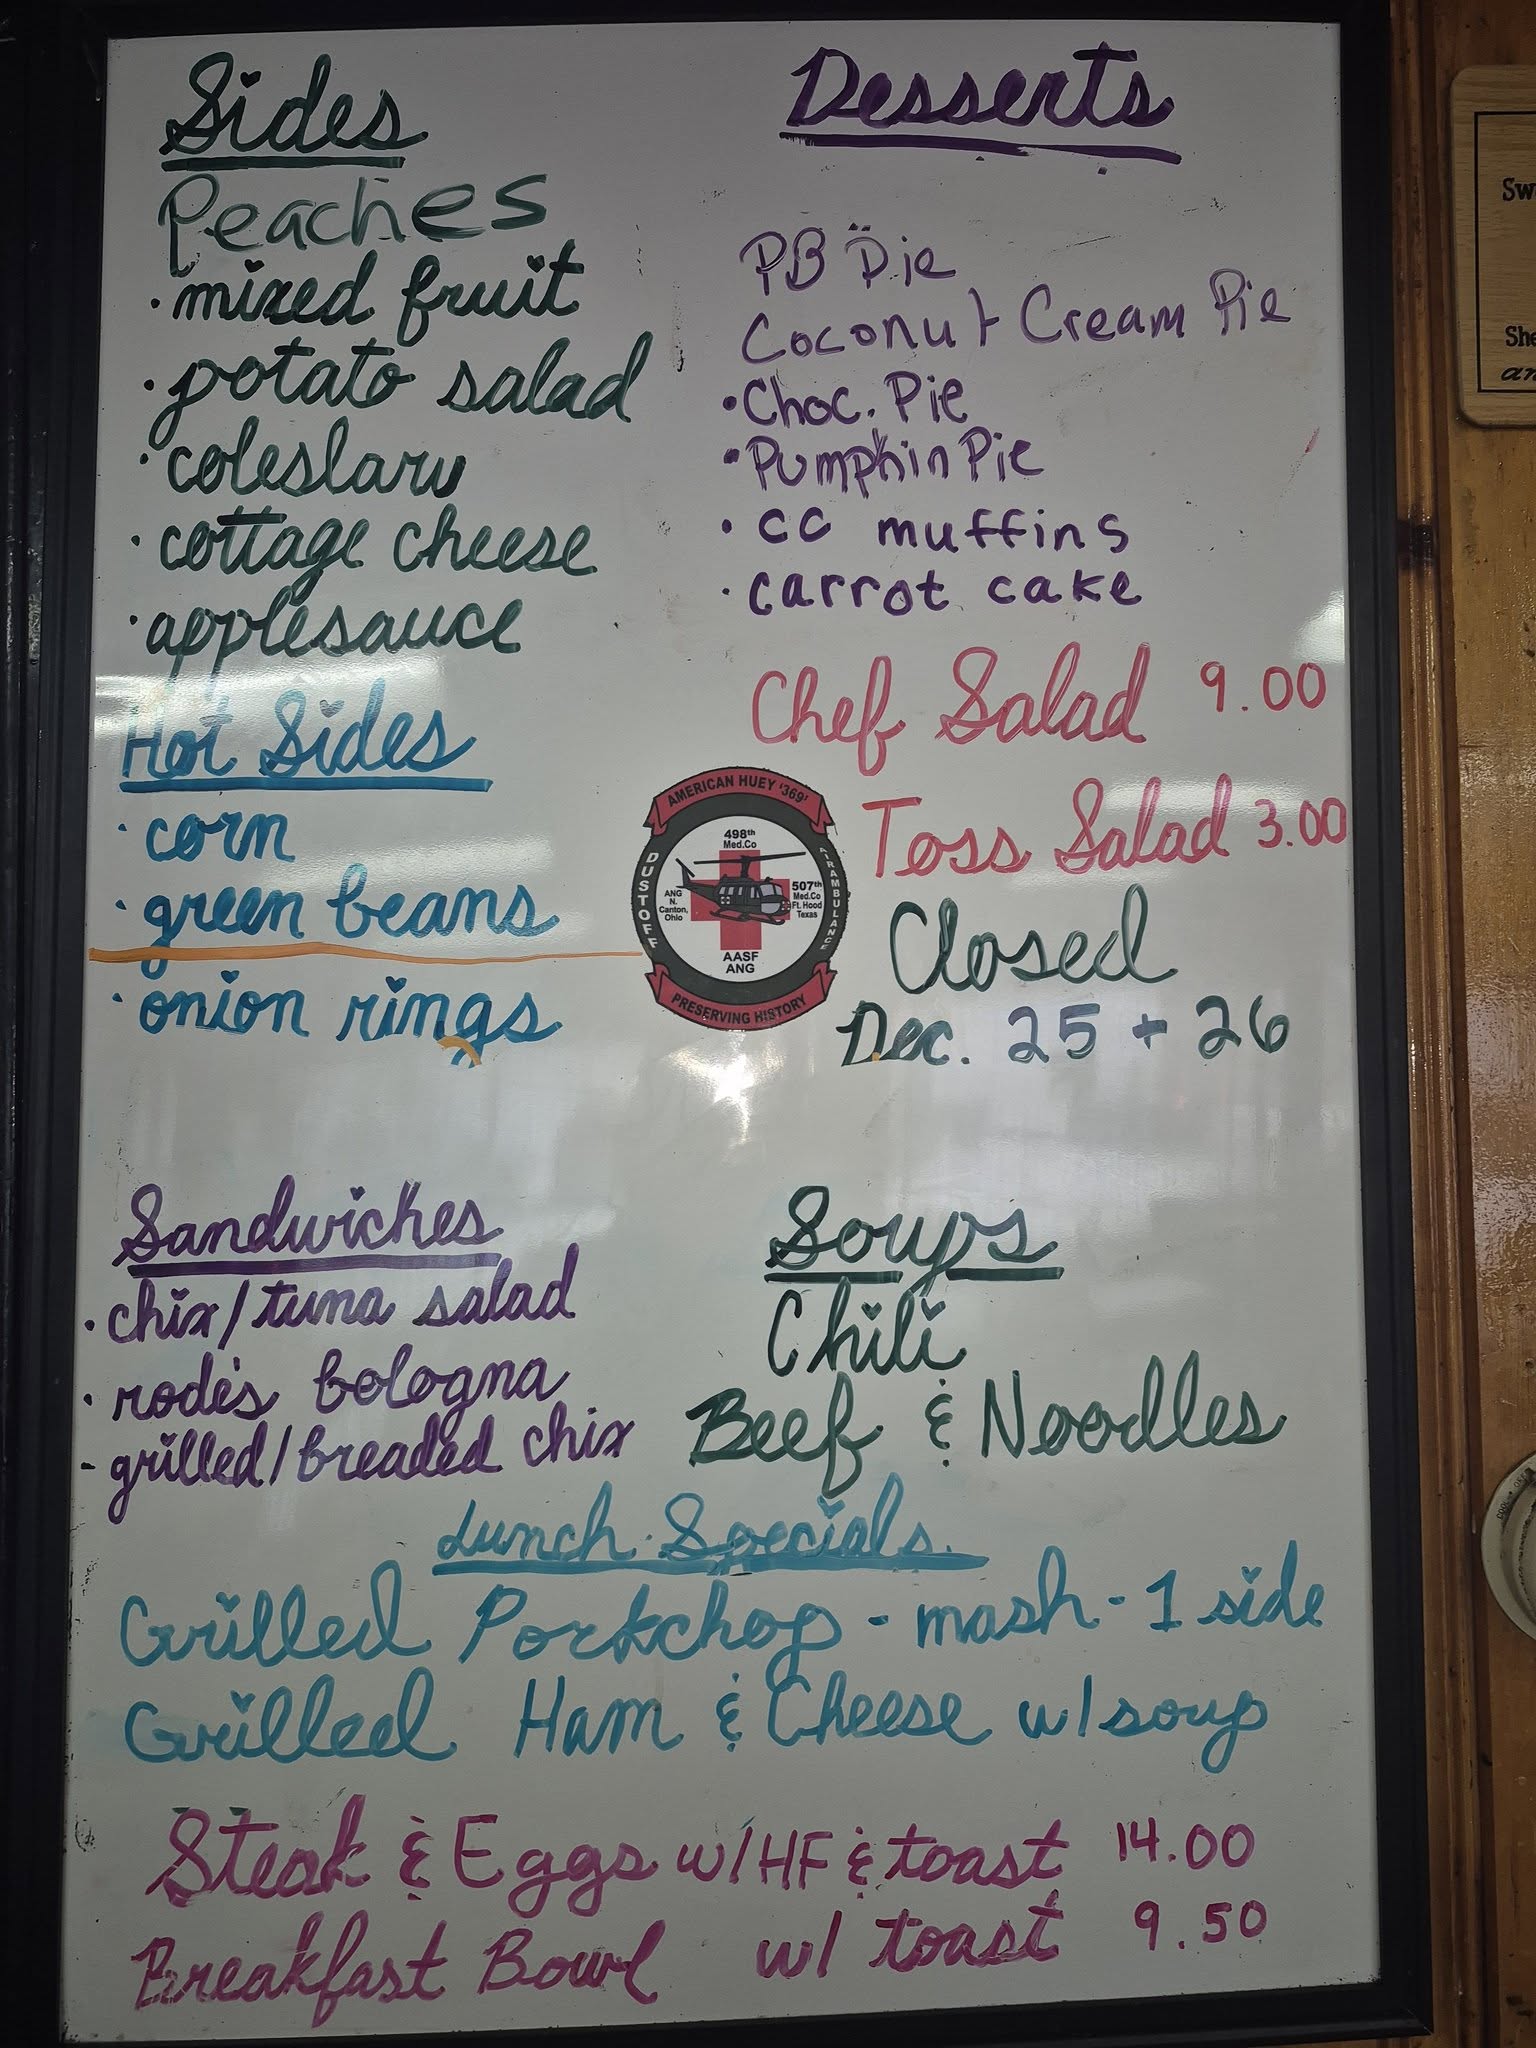 Sides
Peaches
·mixed fruit
·potato salad
·coleslaw
·cottage cheese
·applesauce
Hot Sides
·corn
·green beans
·onion rings
Desserts
PB Pie
Coconut Cream Pie
·Choc. Pie
·Pumpkin Pie
·CC muffins
·carrot cake
Chef Salad 9.00
Toss Salad 3.00
Closed
Dec. 25 + 26
AMERICAN HUEY '369'
DUSTOFF
AIRAMBULANCE
498th
Med.Co
ANG
N.
Canton,
Ohio
507th
Med.Co
Ft. Hood
Texas
AASF
ANG
PRESERVING HISTORY
Sandwiches
·chix/tuna salad
·rode's bologna
-grilled/breaded chix
Soups
Chili
Beef & Noodles
Lunch Specials
Grilled Porkchop - mash - 1 side
Grilled Ham & Cheese w/soup
Steak & Eggs w/HF & toast 14.00
Breakfast Bowl w/ toast 9.50
Sw
She
an